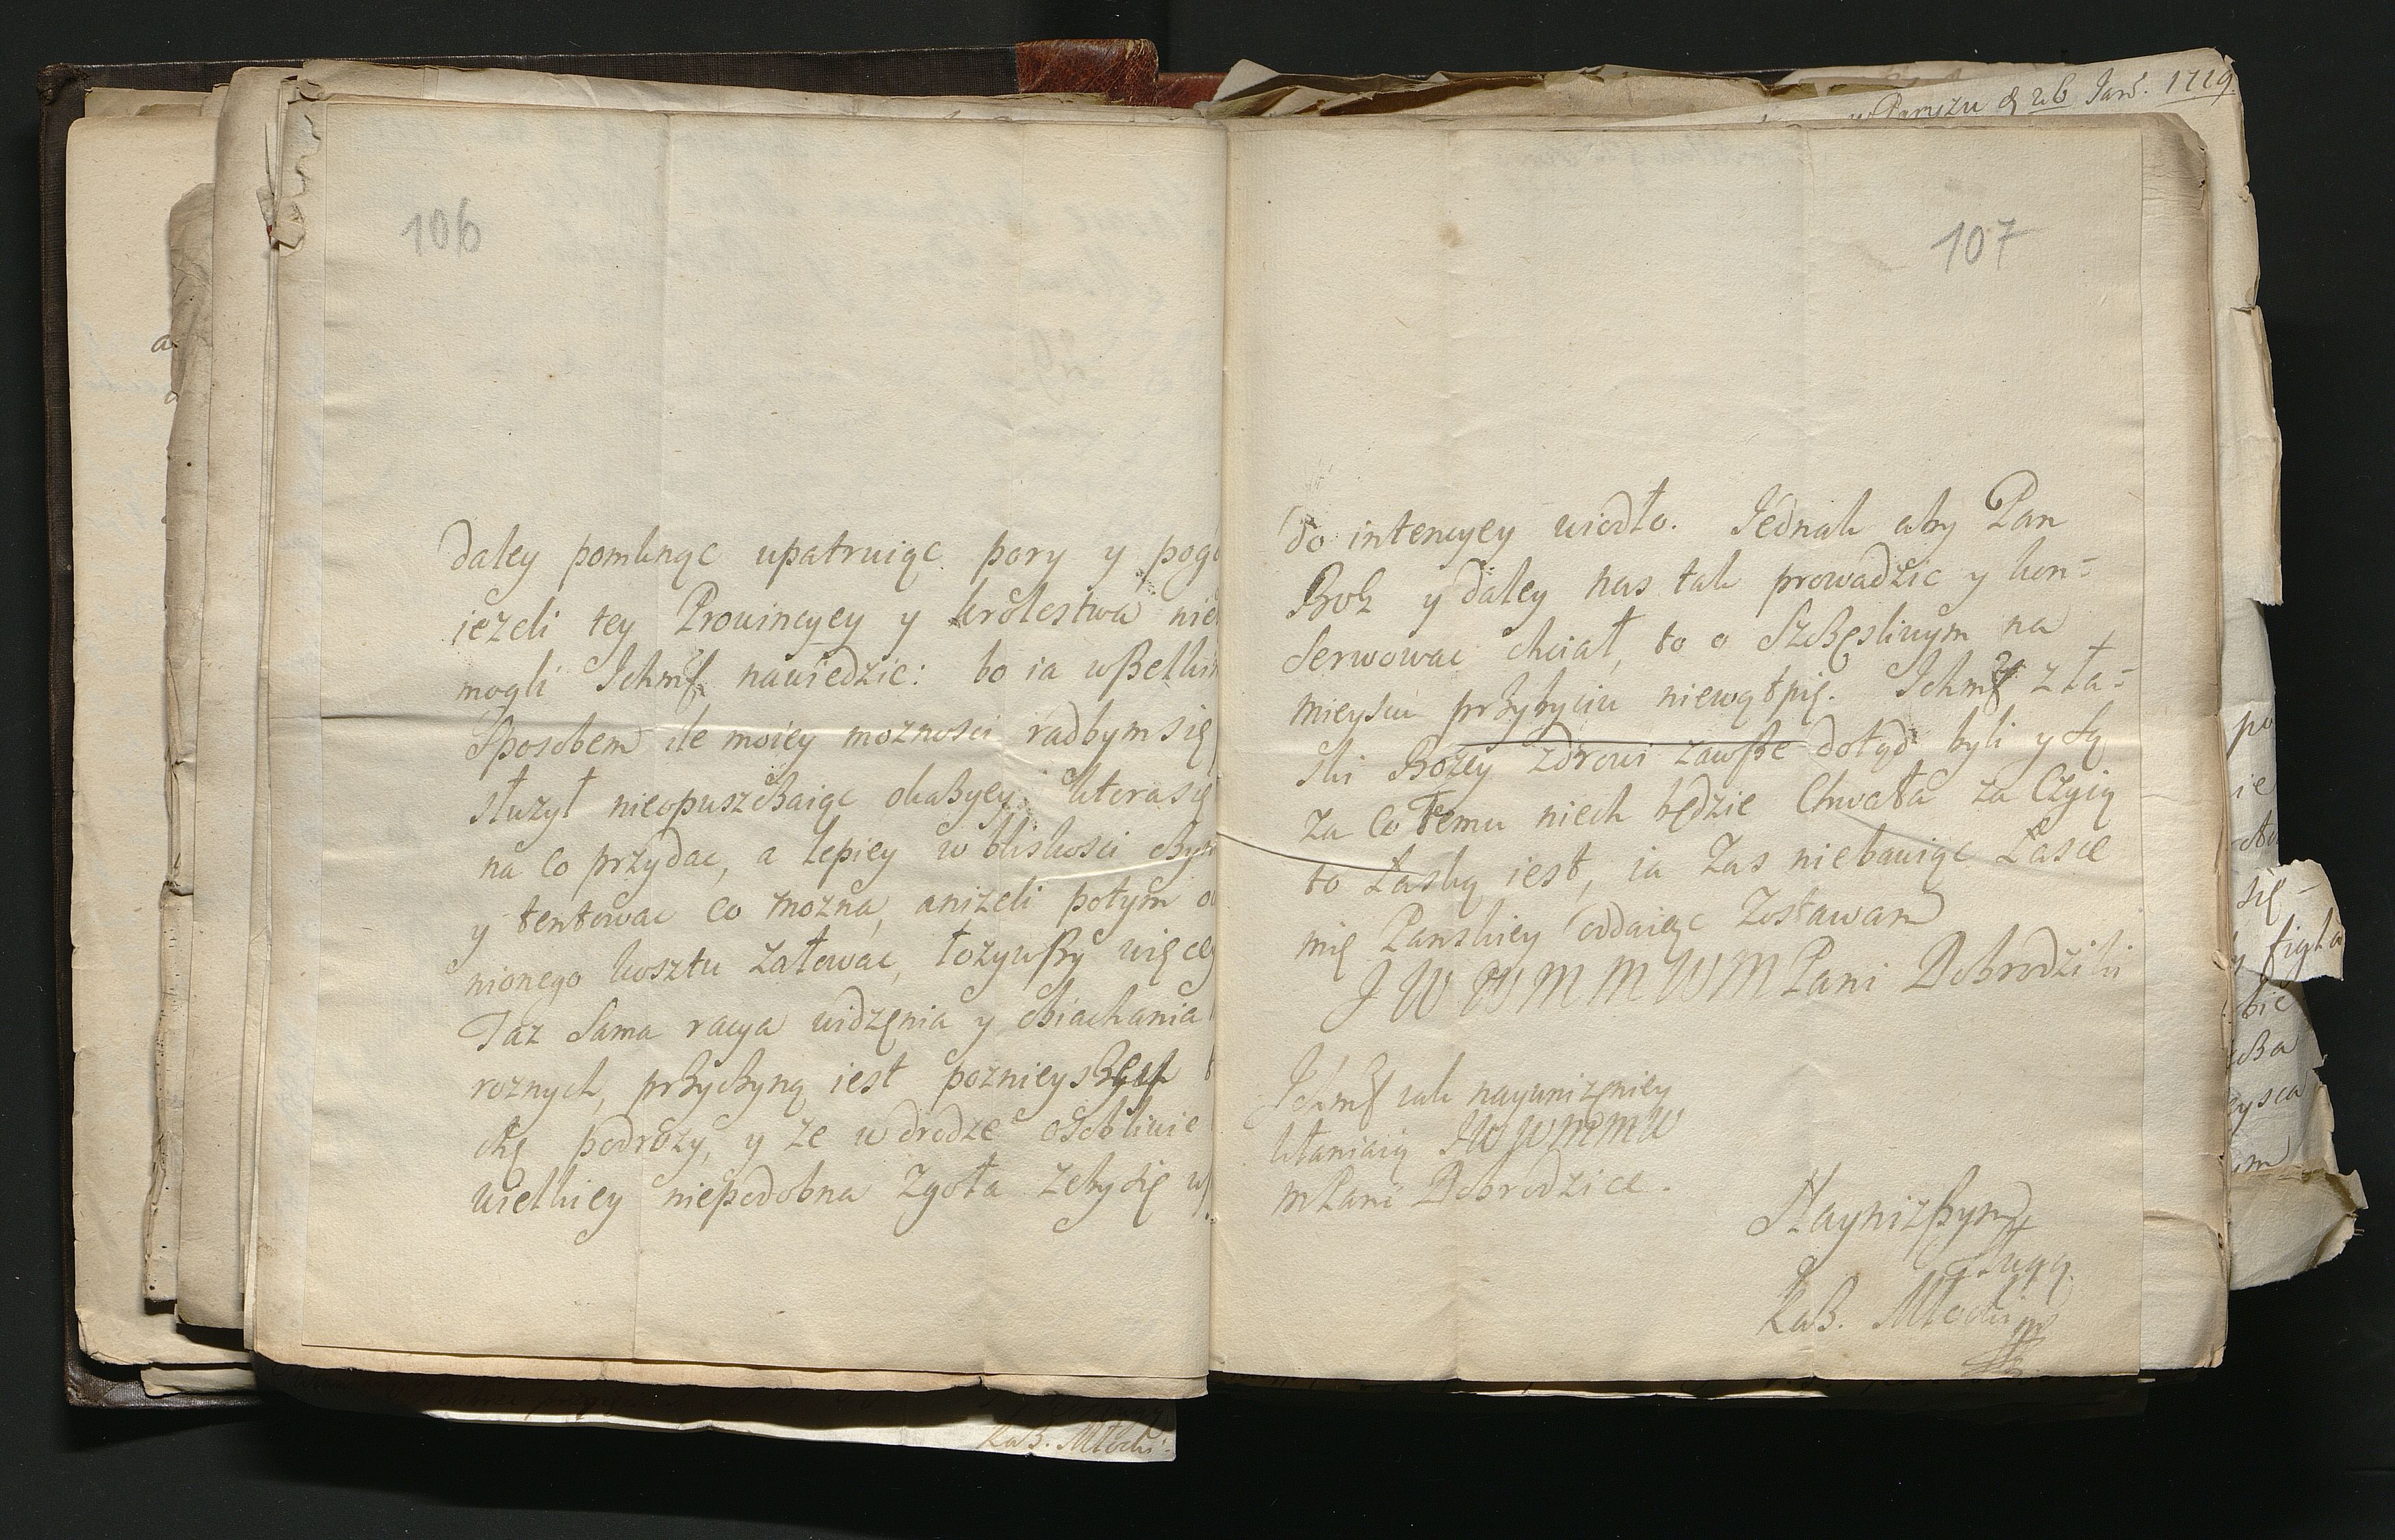 w Paryzu d 26 Jan. 1729.
106
daley pomknąc upatruiąc pory y pogo
iezeli tey Prowincyey y krolestwa nie
mogli Ichmć nawiedzic: bo ia wszelkim
Sposobem ile moiey moznosci radbym się
służył nieopuszczaiąc okazyey ktora się
na co przydac, a lepiey w bliskosci
y tentowac co mozna, anizeli potym
nionego kosztu załowac, łozywszy więcey
Taz Sama racya widzęnia y obiachania
roznych, przyczyną iest poznieyszey
podrozy, y ze w drodze osobliwie
wielkiey niepodobna zgoła zeby się
107
do intencyey wiodło. Jednak aby Pan
Bog y daley nas tak prowadzic y kon=
Serwowac chciał, to o Szczęsliwym na
mieyscu przybyciu niewątpię. Ichmć z ła=
ski Bozey zdrowi zawsze dotąd byli y są
Za co temu niech będzie Chwała za Czyią
to Łaską iest, ia Zas niebawiąc Łasce
mię Panskiey oddaiąc Zostawam
J W W M M W M Pani Dobrodziki
Ichmć iak nayunizęniey
kłaniaią JWWMMW
MPani Dobrodzice.
Nayniższym
Sługą
Kaz. Młocki
Kaz. Młocki